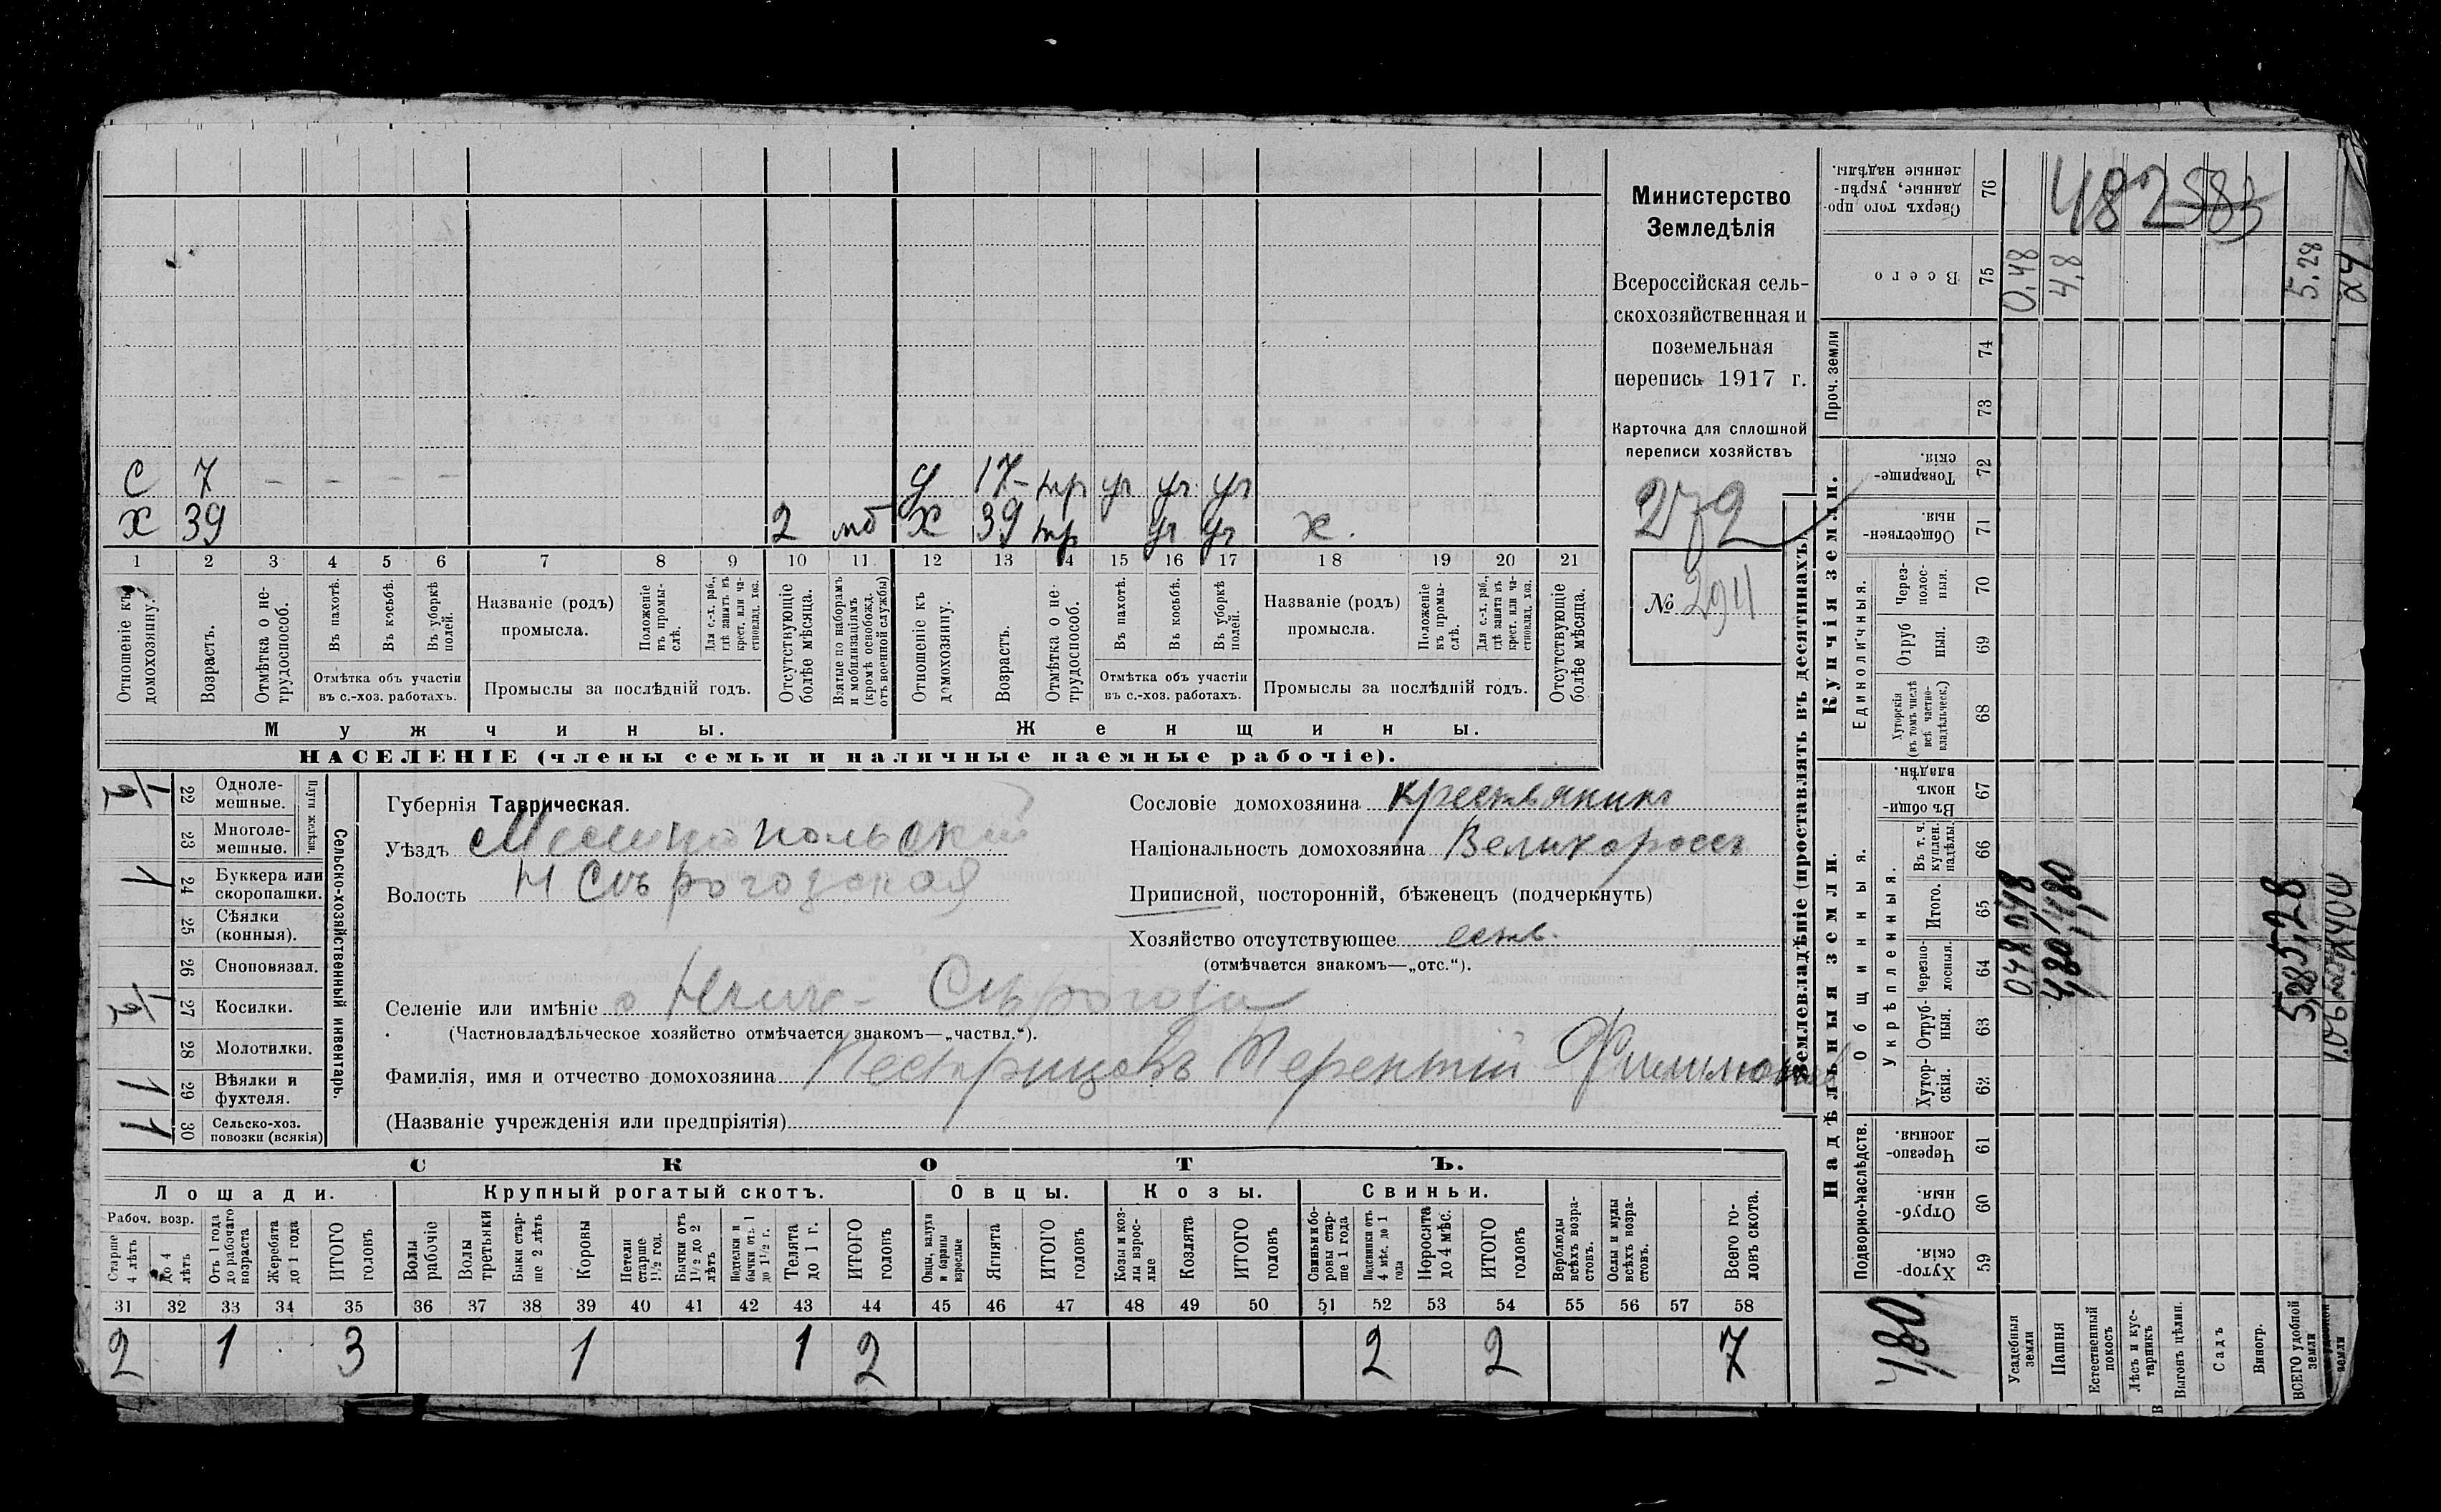 С 7 – – – – У 17 – тр уч уч. уч
Х 39 2 мб Х 39 тр уч уч х.
1 2 3 4 5 6 7 8 9 10 11 12 13 14 15 16 17 18 19 20 21
Отношеніе къ домохозяину.
Возрастъ.
Отмѣтка о нетрудоспособ.
Въ пахотѣ.
Въ косьбѣ.
Въ уборкѣ полей.
Отмѣтка объ участіи
въ с.-хоз. работахъ.
Названіе (родъ)
промысла.
Положеніе въ промыслѣ.
Для с.-х. раб., гдѣ занятъ въ крест. или частновлад. хоз.
Промыслы за послѣдній годъ.
Отсутствующіе болѣе мѣсяца.
Взятые по наборамъ и мобилизаціямъ (кромѣ освобожд. отъ военной службы)
Отношеніе къ домохозяину.
Возрастъ.
Отмѣтка о нетрудоспособ.
Въ пахотѣ.
Въ косьбѣ.
Въ уборкѣ полей.
Отмѣтка объ участіи
въ с.-хоз. работахъ.
Названіе (родъ)
промысла.
Положеніе въ промыслѣ.
Для с.-х. раб., гдѣ занята въ крест. или частновлад. хоз.
Промыслы за послѣдній годъ.
Отсутствующіе болѣе мѣсяца.
Мужчины. Женщины.
НАСЕЛЕНІЕ (члены семьи и наличные наемные рабочіе).
Министерство
Земледѣлія
Всероссійская сель-
скохозяйственная и
поземельная
перепись 1917 г.
Карточка для сплошной
переписи хозяйствъ
272
№ 294
Сельско-хозяйственный инвентарь.
Плуги желѣзн.
1/2 22 Одноле-
мешные.
23 Многоле-
мешные.
1 24 Буккера или
скоропашки.
25 Сѣялки
(конныя).
26 Сноповязал.
1/2 27 Косилки.
28 Молотилки.
1 29 Вѣялки и
фухтеля.
1 30 Сельско-хоз.
повозки (всякія)
Губернія Таврическая.
Уѣздъ Мелитопольскій
Волость Н Сѣрогозская
Сословіе домохозяина крестьянинъ
Національность домохозяина Великороссъ
Приписной, посторонній, бѣженецъ (подчеркнуть)
Хозяйство отсутствующее
(отмѣчается знакомъ—„отс.“).
Селеніе или имѣніе с Нижн- Сѣрогозы
(Частновладѣльческое хозяйство отмѣчается знакомъ—„частвл.“).
Фамилія, имя и отчество домохозяина Пестрицовъ Терентій Филимонов
(Названіе учрежденія или предпріятія)
СКОТЪ.
Лошади. Крупный рогатый скотъ. Овцы. Козы. Свиньи.
Рабоч. возр.
Старше 4 лѣтъ
до 4 лѣтъ
Отъ 1 года до рабочаго возраста
Жеребята до 1 года
ИТОГО головъ
Волы рабочіе
Волы третьяки
Быки старше 2 лѣтъ
Коровы
Нетели старше 1½ год.
Бычки отъ 1½ до 2 лѣтъ
Подтелки и бычки отъ 1 до 1½ г.
Телята до 1 г.
ИТОГО головъ
Овцы, валухи и бараны взрослые
Ягнята
ИТОГО головъ
Козы и козлы взрослые
Козлята
ИТОГО головъ
Свиньи и боровы старше 1 года
Подсвинки отъ 4 мѣс. до 1 года
Поросята до 4 мѣс.
ИТОГО головъ
Верблюды всѣхъ возрастовъ.
Ослы и мулы всѣхъ возрастовъ.
Всего головъ скота.
31 32 33 34 35 36 37 38 39 40 41 42 43 44 45 46 47 48 49 50 51 52 53 54 55 56 57 58
2 1 3 1 1 2 2 2 7
Землевладѣніе (проставлять въ десятинахъ)
Надѣльныя земли. Купчія земли.
Подворно-наслѣдств.
Общинныя.
Укрѣпленныя.
Единоличныя.
Проч. земли
76 Сверхъ того проданные, укрѣпленные надѣлы.
75 Всего
74
73
72 Товарищескія.
71 Общественныя.
70 Черезполосныя.
69 Отрубныя.
68 Хуторскія (въ томъ числѣ всѣ частновладѣльческ.)
67 Въ общинномъ владѣн.
66 Въ т. ч. куплен. надѣлы.
65 Итого.
64 Черезполосныя.
63 Отрубныя.
62 Хуторскія.
61 Черезполосныя.
60 Отрубныя.
59 Хуторскія
482 583
0,48
4,8
5.28
24
0,48 0,48
4,80 4,80
5,28 5,28
4,80.
Усадебныя земли
Пашня
Естественный покосъ
Лѣсъ и кустарникъ
Выгонъ цѣлин.
Садъ
Виногр.
ВСЕГО удобной земли
земли